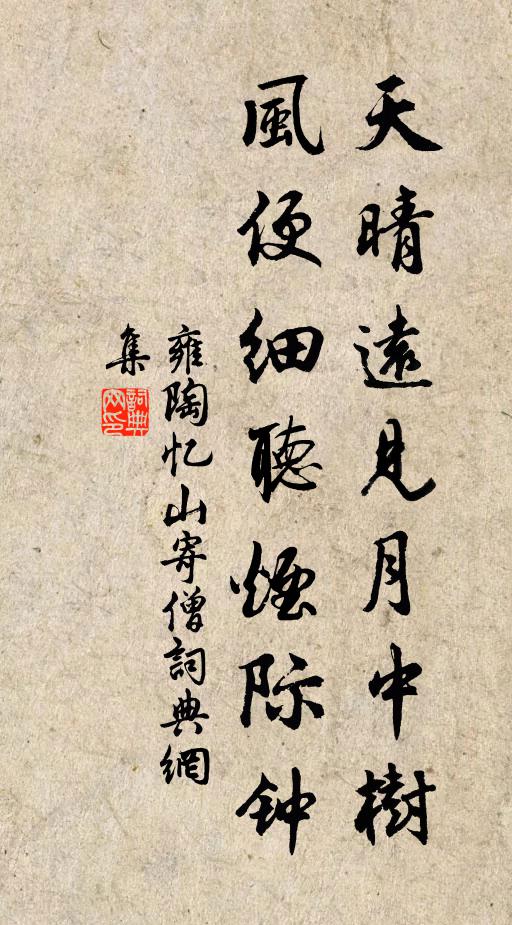 天晴遠見月中樹
風便细聽煙际钟
雍陶忆山寄僧詞典網
集
詞典
网印